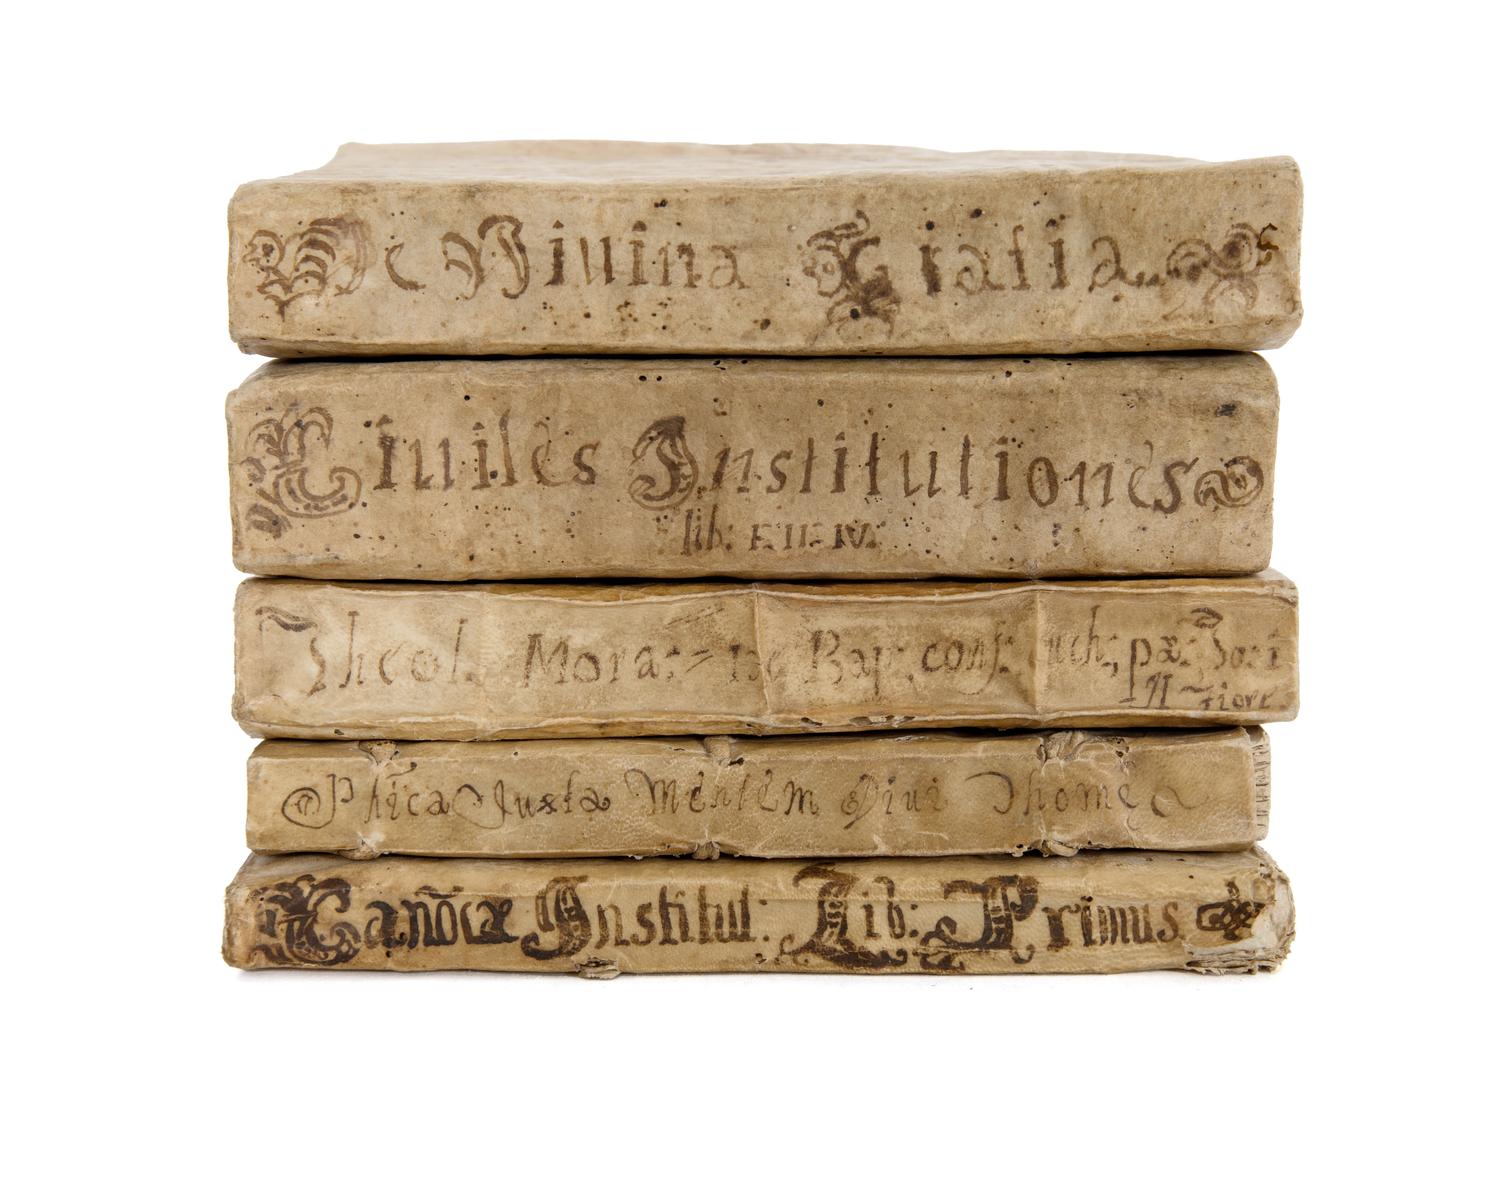 De Divina Gratia
Civiles Institutiones
lib:
Theol. Mora: Bap: conf:
Phĩca Juxta Mentem Divi Thomę
Canõcæ Institut: Lib: Primus